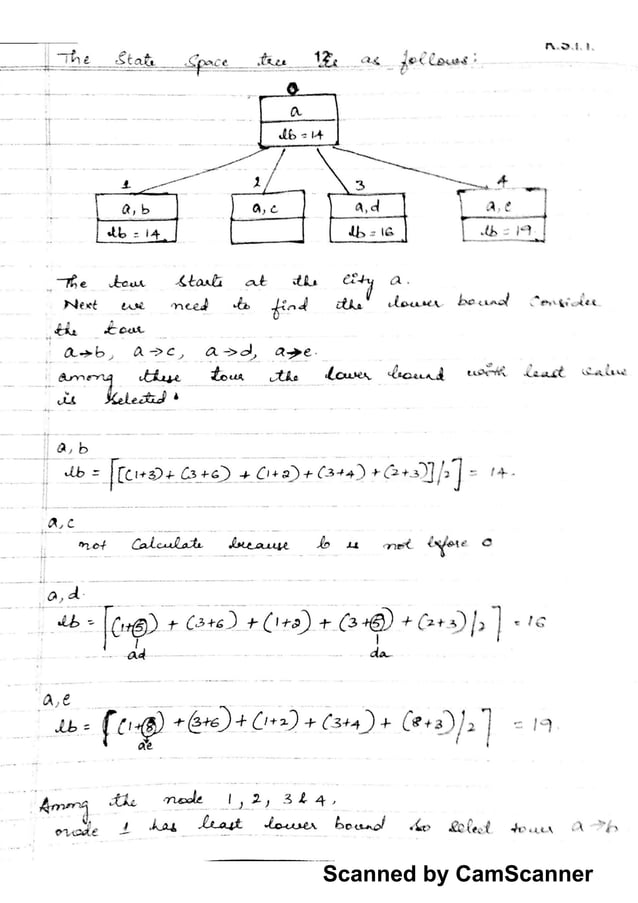 R.S.I.T.
The State Space tree is as follows:
0
a
lb = 14
1 2 3 4
a, b a, c a, d a, e
lb = 14 lb = 16 lb = 19.
The tour starts at the city a.
Next we need to find the lower bound consider
the tour
a→b, a→c, a→d, a→e.
among these tour the lower bound with least value
is selected.
a, b
lb = ⌈[(1+3)+(3+6)+(1+2)+(3+4)+(2+3)]/2⌉ = 14.
a, c
not calculate because b is not before c
a, d.
lb = ⌈(1+5)+(3+6)+(1+2)+(3+5)+(2+3)/2⌉ = 16
ad da
a, e
lb = ⌈(1+8)+(3+6)+(1+2)+(3+4)+(8+3)/2⌉ = 19.
ae
Among the node 1, 2, 3 & 4.
node 1 has least lower bound so select tour a→b
Scanned by CamScanner